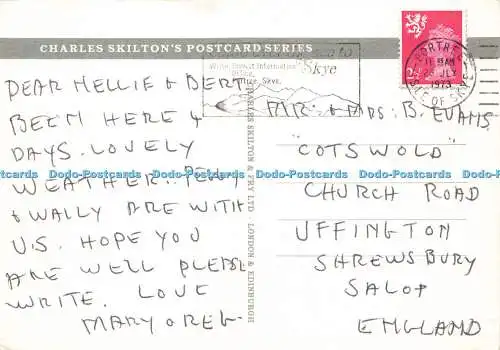 CHARLES SKILTON'S POSTCARD SERIES
Skye
PORTREE
11 15 AM
25 JLY
1973
ISLE OF SKYE
2½
DEAR NELLIE & BERT
BEEN HERE 4
DAYS. LOVELY
WEATHER. PENNY
& WALLY ARE WITH
U.S. HOPE YOU
ARE WELL PLEASE
WRITE. LOVE
MARY & REG.
CHARLES SKILTON & FRY LTD LONDON & EDINBURGH
MR. & MRS. B. EVANS
"COTSWOLD"
CHURCH ROAD
UFFINGTON
SHREWSBURY
SALOP
ENGLAND
Dodo-Postcards Dodo-Postcards Dodo-Postcards Dodo-Postcards